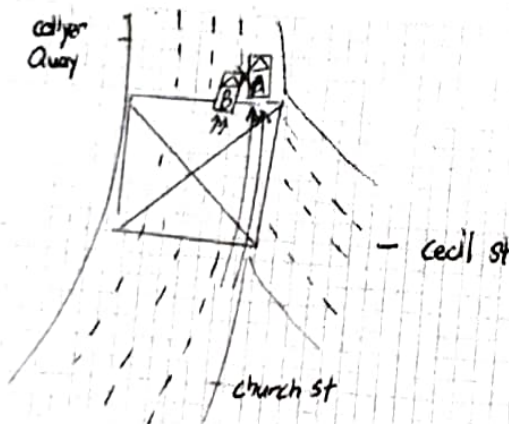 collyer
Quay
B
A
cecil st
church st